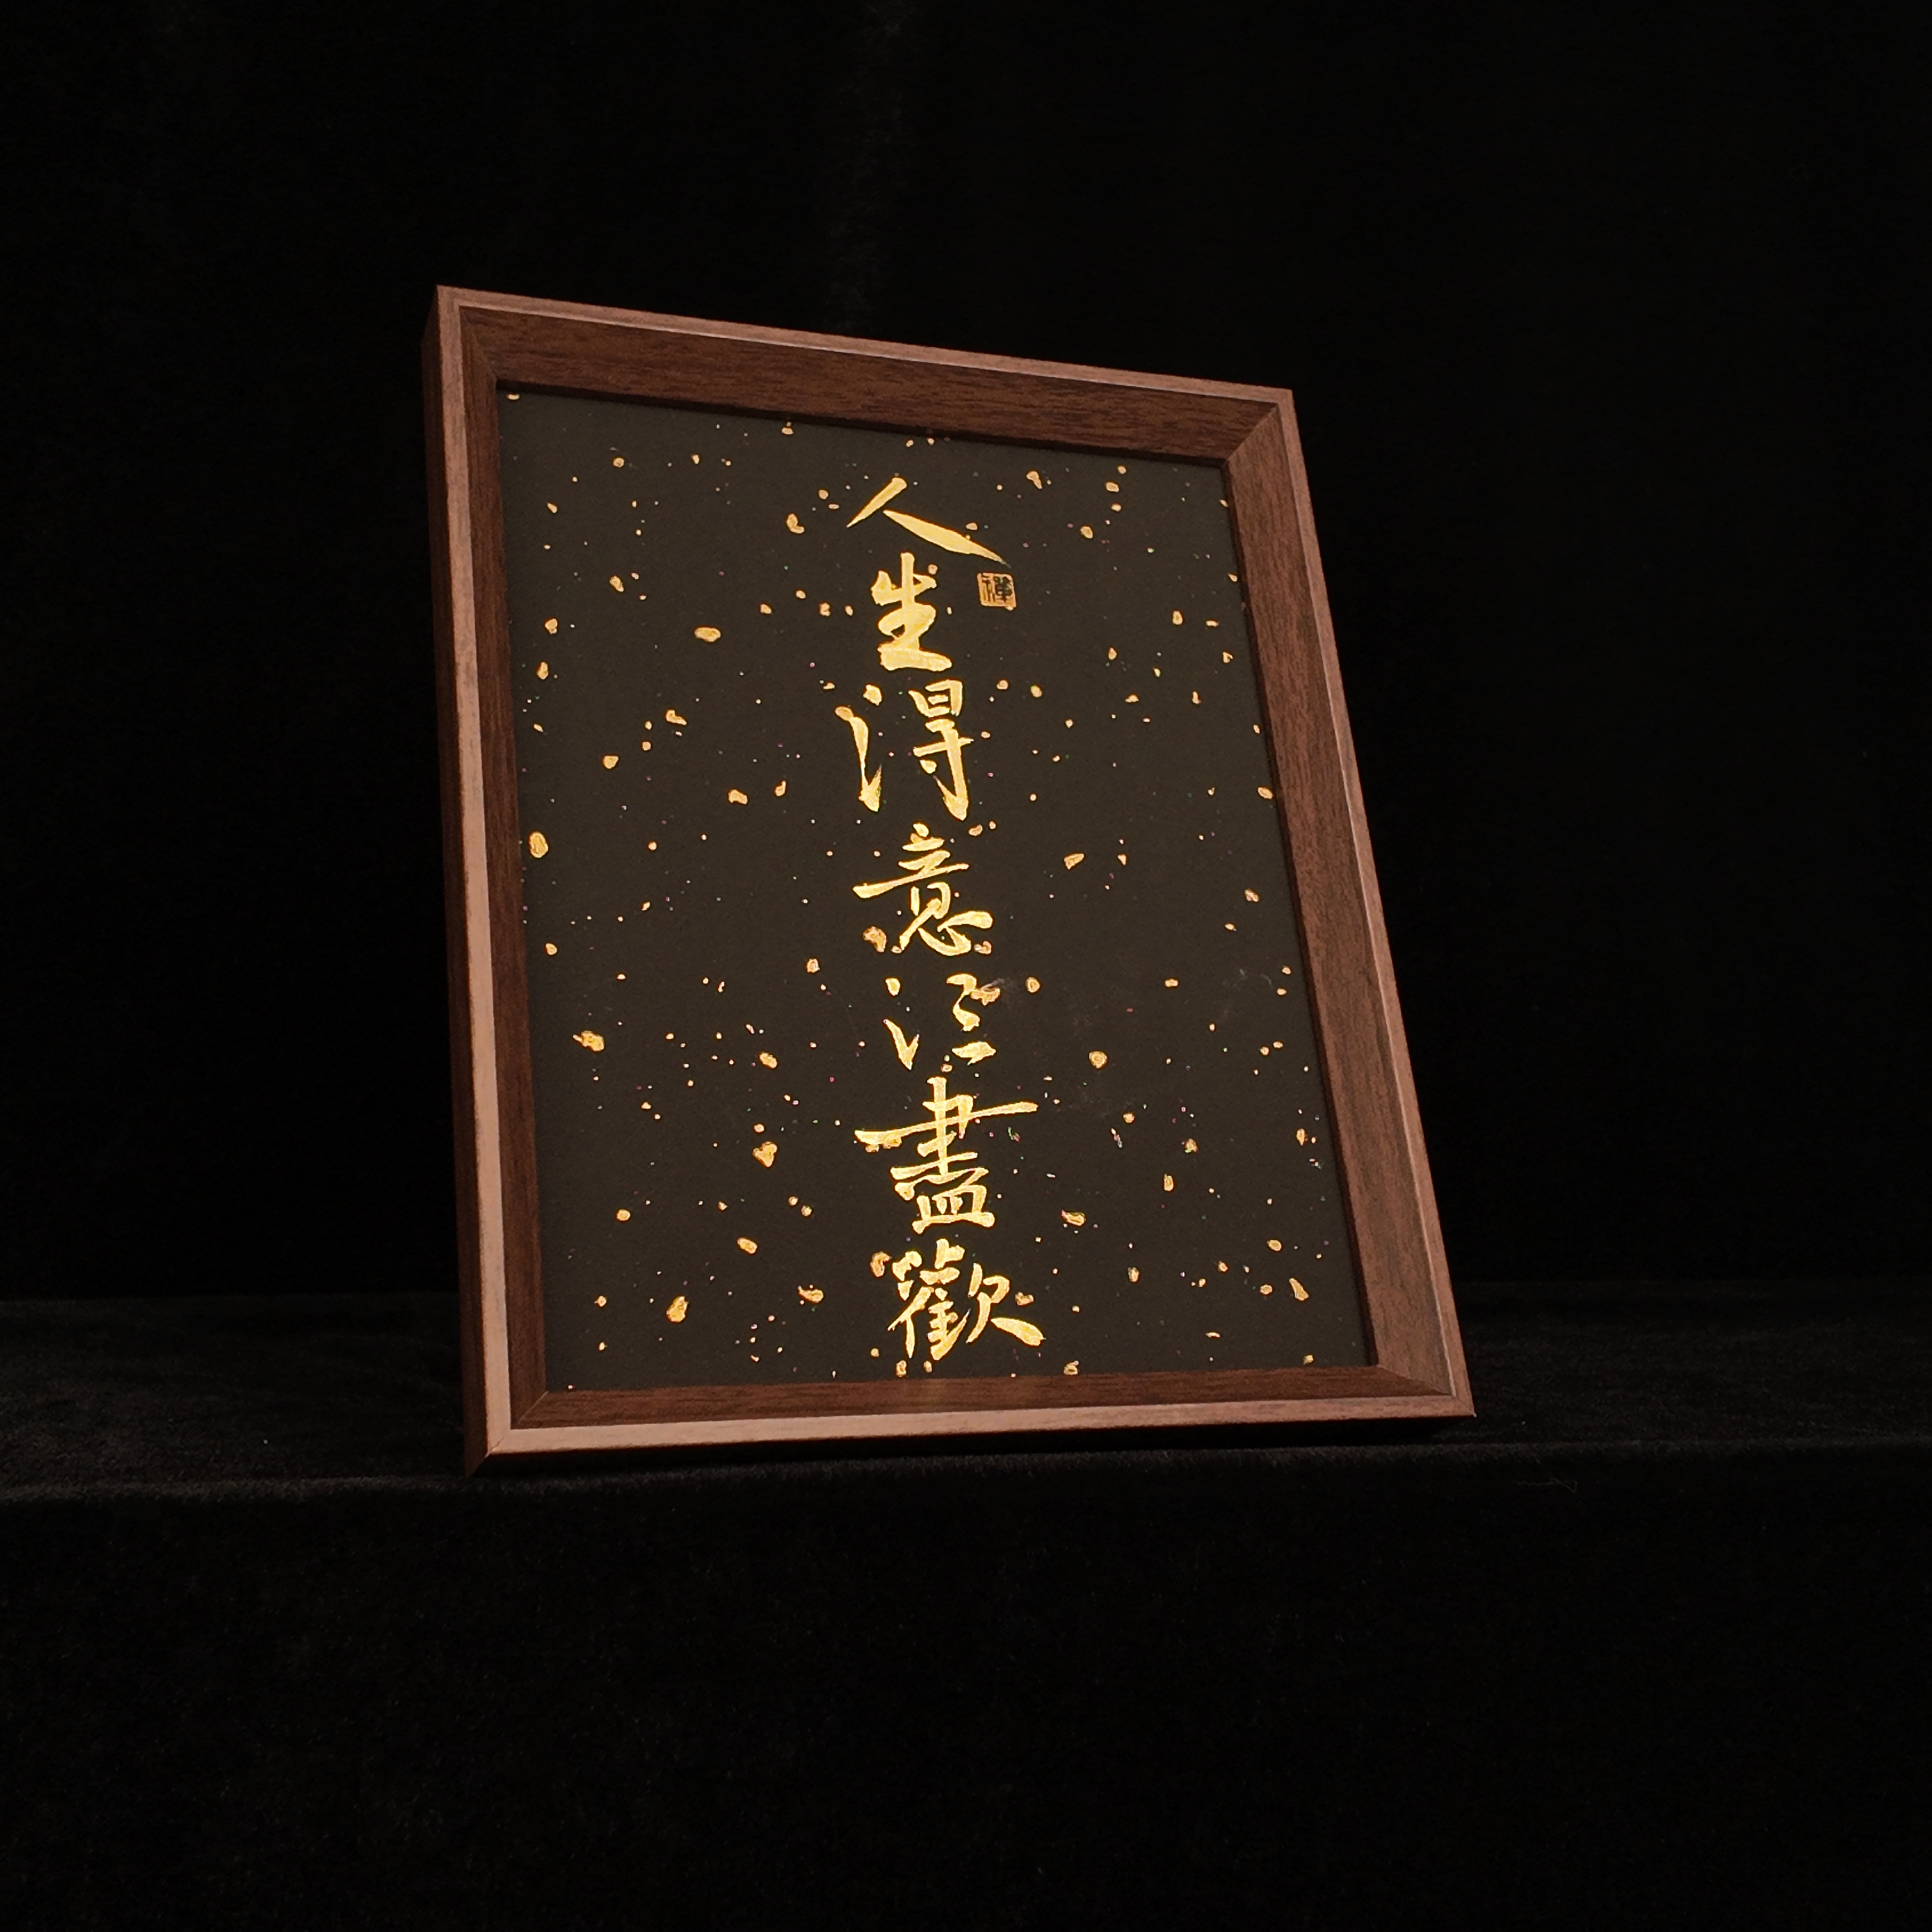 人生得意須盡歡
禪